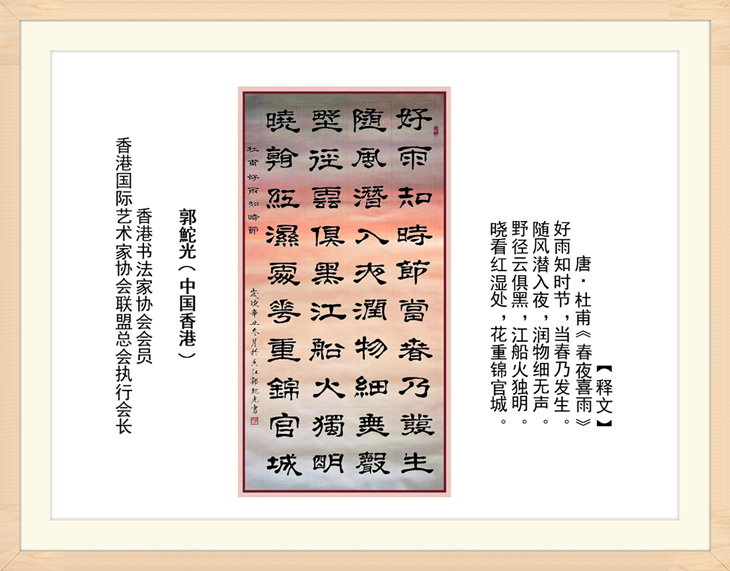 【释文】
唐·杜甫《春夜喜雨》
好雨知时节，当春乃发生。
随风潜入夜，润物细无声。
野径云俱黑，江船火独明。
晓看红湿处，花重锦官城。
好雨知時節當春乃發生
隨風潛入夜潤物細無聲
埜徑雲俱黑江船火獨明
曉看紅濕處花重錦官城
杜甫好雨知時節
歲次辛丑冬月於香江郭鮀光書
郭鮀光（中国香港）
香港书法家协会会员
香港国际艺术家协会联盟总会执行会长